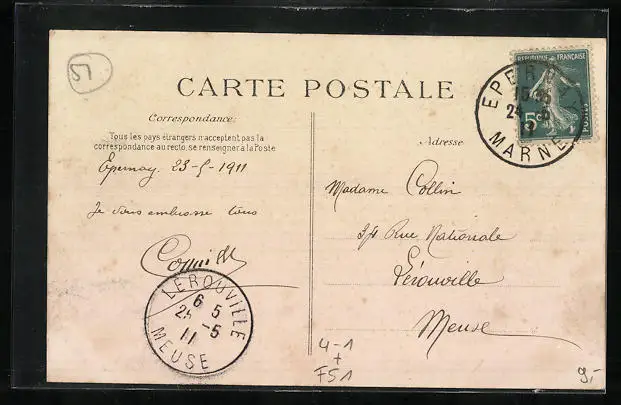 51
CARTE POSTALE
Correspondance:
Tous les pays étrangers n'acceptent pas la
correspondance au recto, se renseigner à la Poste
Epernay 23-5-1911
Je vous embrasse tous
Adresse
Madame Collin
34 Rue Nationale
Lérouville
Meuse
REPUBLIQUE FRANÇAISE
POSTES
5c
EPERNAY
MARNE
LÉROUVILLE
6 5
25 -5
11
MEUSE
4-1
+
F51
9,-